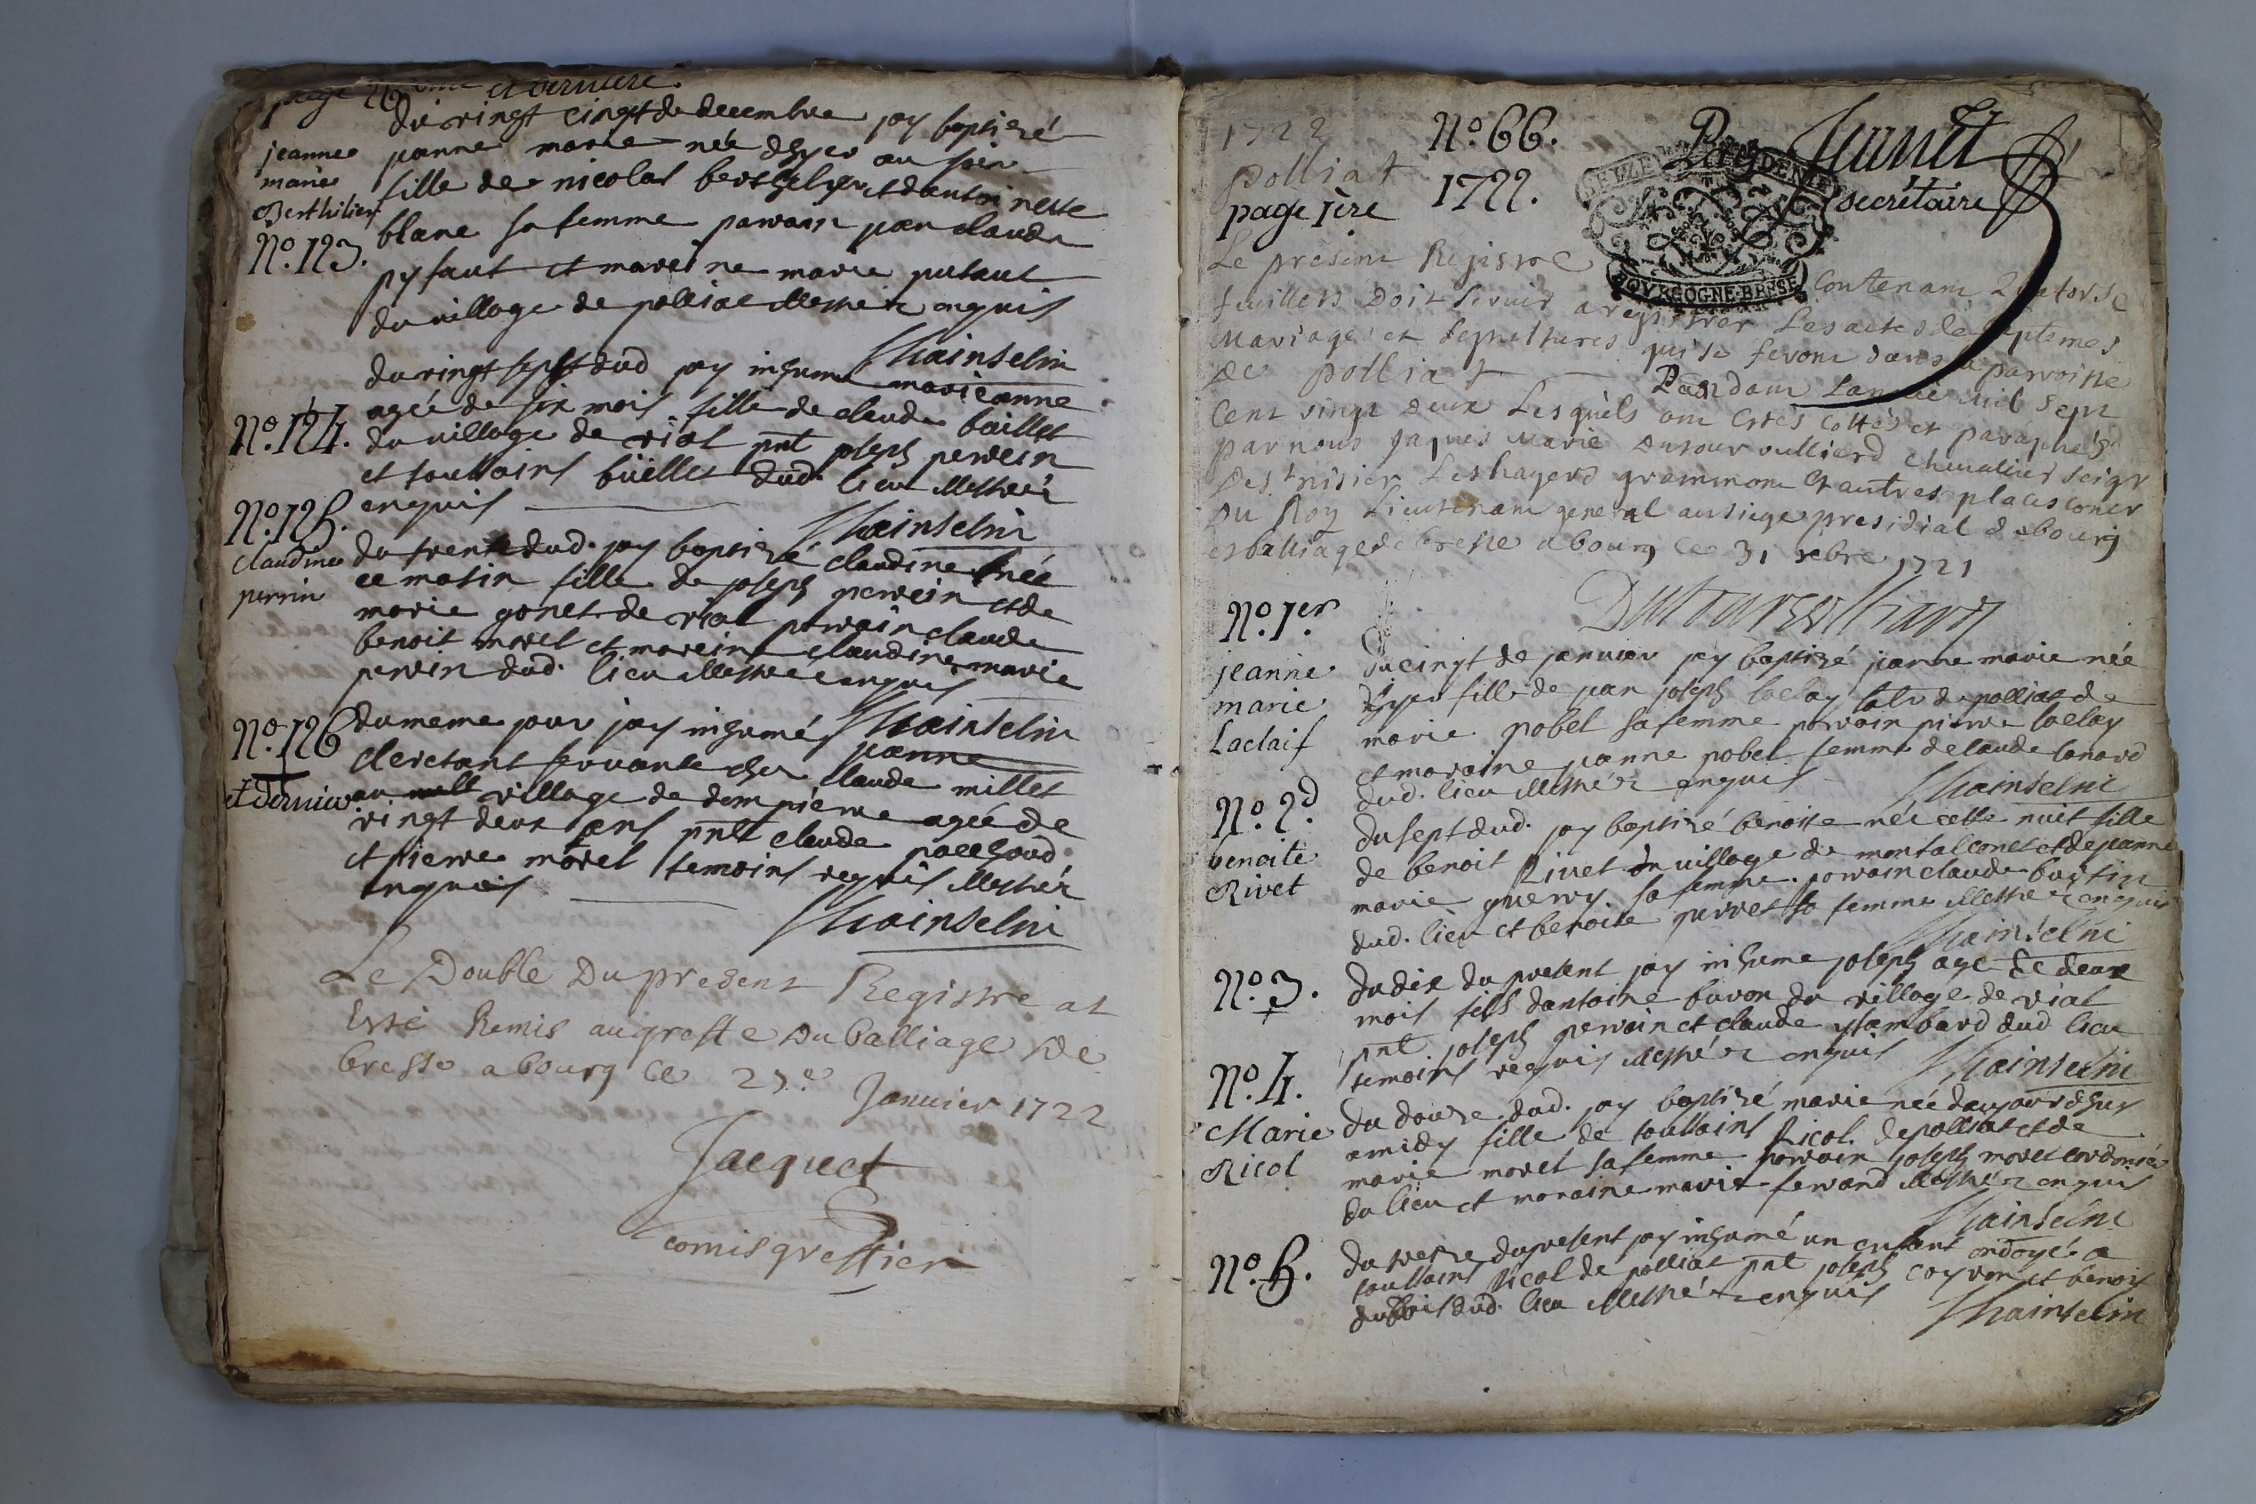 page 26 ème et derniere.
du vingt cinqt de decembre jay baptizé
jeanne marie née dhyer au soir
fille de nicolas berthelier et dantoinette
blanc sa femme parrain jean claude
pysaut et mareine marie putaut
du village de polliat illettrés enquis
Chainselin
jeanne
marie
Berthilier
No. 123.
du vingt sept dud jay inhumé marieanne
agée de six mois fille de claude baillet
du village de vial pnt joseph perrein
et toussains buellet dud. lieu illettrés
enquis
Chainselin
No. 124.
No. 125.
claudine
perrin
du trente dud. jay baptizé claudine née
ce matin fille de joseph perrein et de
marie gonet de vial parrain claude
benoit morel et mareine claudine marie
perrin dud. lieu illettrés enquis
Chainselin
No. 126
et dernier
du meme jour jay inhumé jeanne
clerctant servante chez claude millet
au village de dompierre agée de
vingt deux ans pnt claude pocchoud
et pierre morel temoins requis illettrés
enquis
Chainselin
Le Double Du present Registre at
Esté Remis au greffe Du Balliage De
bresse a bourg ce 27e Janvier 1722
Jacquet
comis greffier
1722
polliat
page 1ère
No. 66.
1722.
secrétaire
BOVRGOGNE-BRESSE
Le presént Registre Contenant
feuillets Doit servir a registrer Les actes de Baptemes
Mariages et Sepultures qui se feront dans la parroisse
De polliat Pandant Lannée mil sept
Cent vingt deux Lesquels ont Estés Cottés et paraphés
par nous Jaques Marie Dutour vulliard Chevalier Seigr
De St nisier Leshayes grammont et autres places Coner
Du Roy Lieutenant general au siege presidial de bourg
et balliage de bresse a bourg ce 31 xbre 1721
Dutour Vulliard
No. 1.er
jeanne
marie
Laclaif
Du cinqt de janvier jay baptizé jeanne marie née
dhyer fille de jean joseph laclay de polliat de
marie pobel sa femme parrain pierre laclay
et maraine jeanne pobel femme de claude bonard
dud. lieu illettrés enquis
Chainselin
No. 2.d
benoite
Rivet
du sept dud. jay baptizé benoite née cette nuit fille
de benoit Rivet du village de montalconet et de jeanne
marie guerry sa femme. parrain claude
dud. lieu et benoite perret sa femme illettrés enquis
Chainselin
No. 3.
du dix du present jay inhumé joseph agé de deux
mois fils dantoine buvon du village de vial
pnt joseph perrein et claude jambard dud lieu
temoins requis illettrés enquis
Chainselin
No. 4.
Marie
Ricol
du douze dud. jay baptizé marie née daujourdhuy
a midy fille de toussains Ricol de polliat et de
marie morel sa femme parrain joseph morel cordonier
du lieu et maraine marie ferrand illettrés enquis
Chainselin
No. 5.
du treize du present jay inhumé un enfant ondoyé a
toussains Ricol de polliat pnt joseph coyron et benoit
dubois dud. lieu illettrés enquis
Chainselin